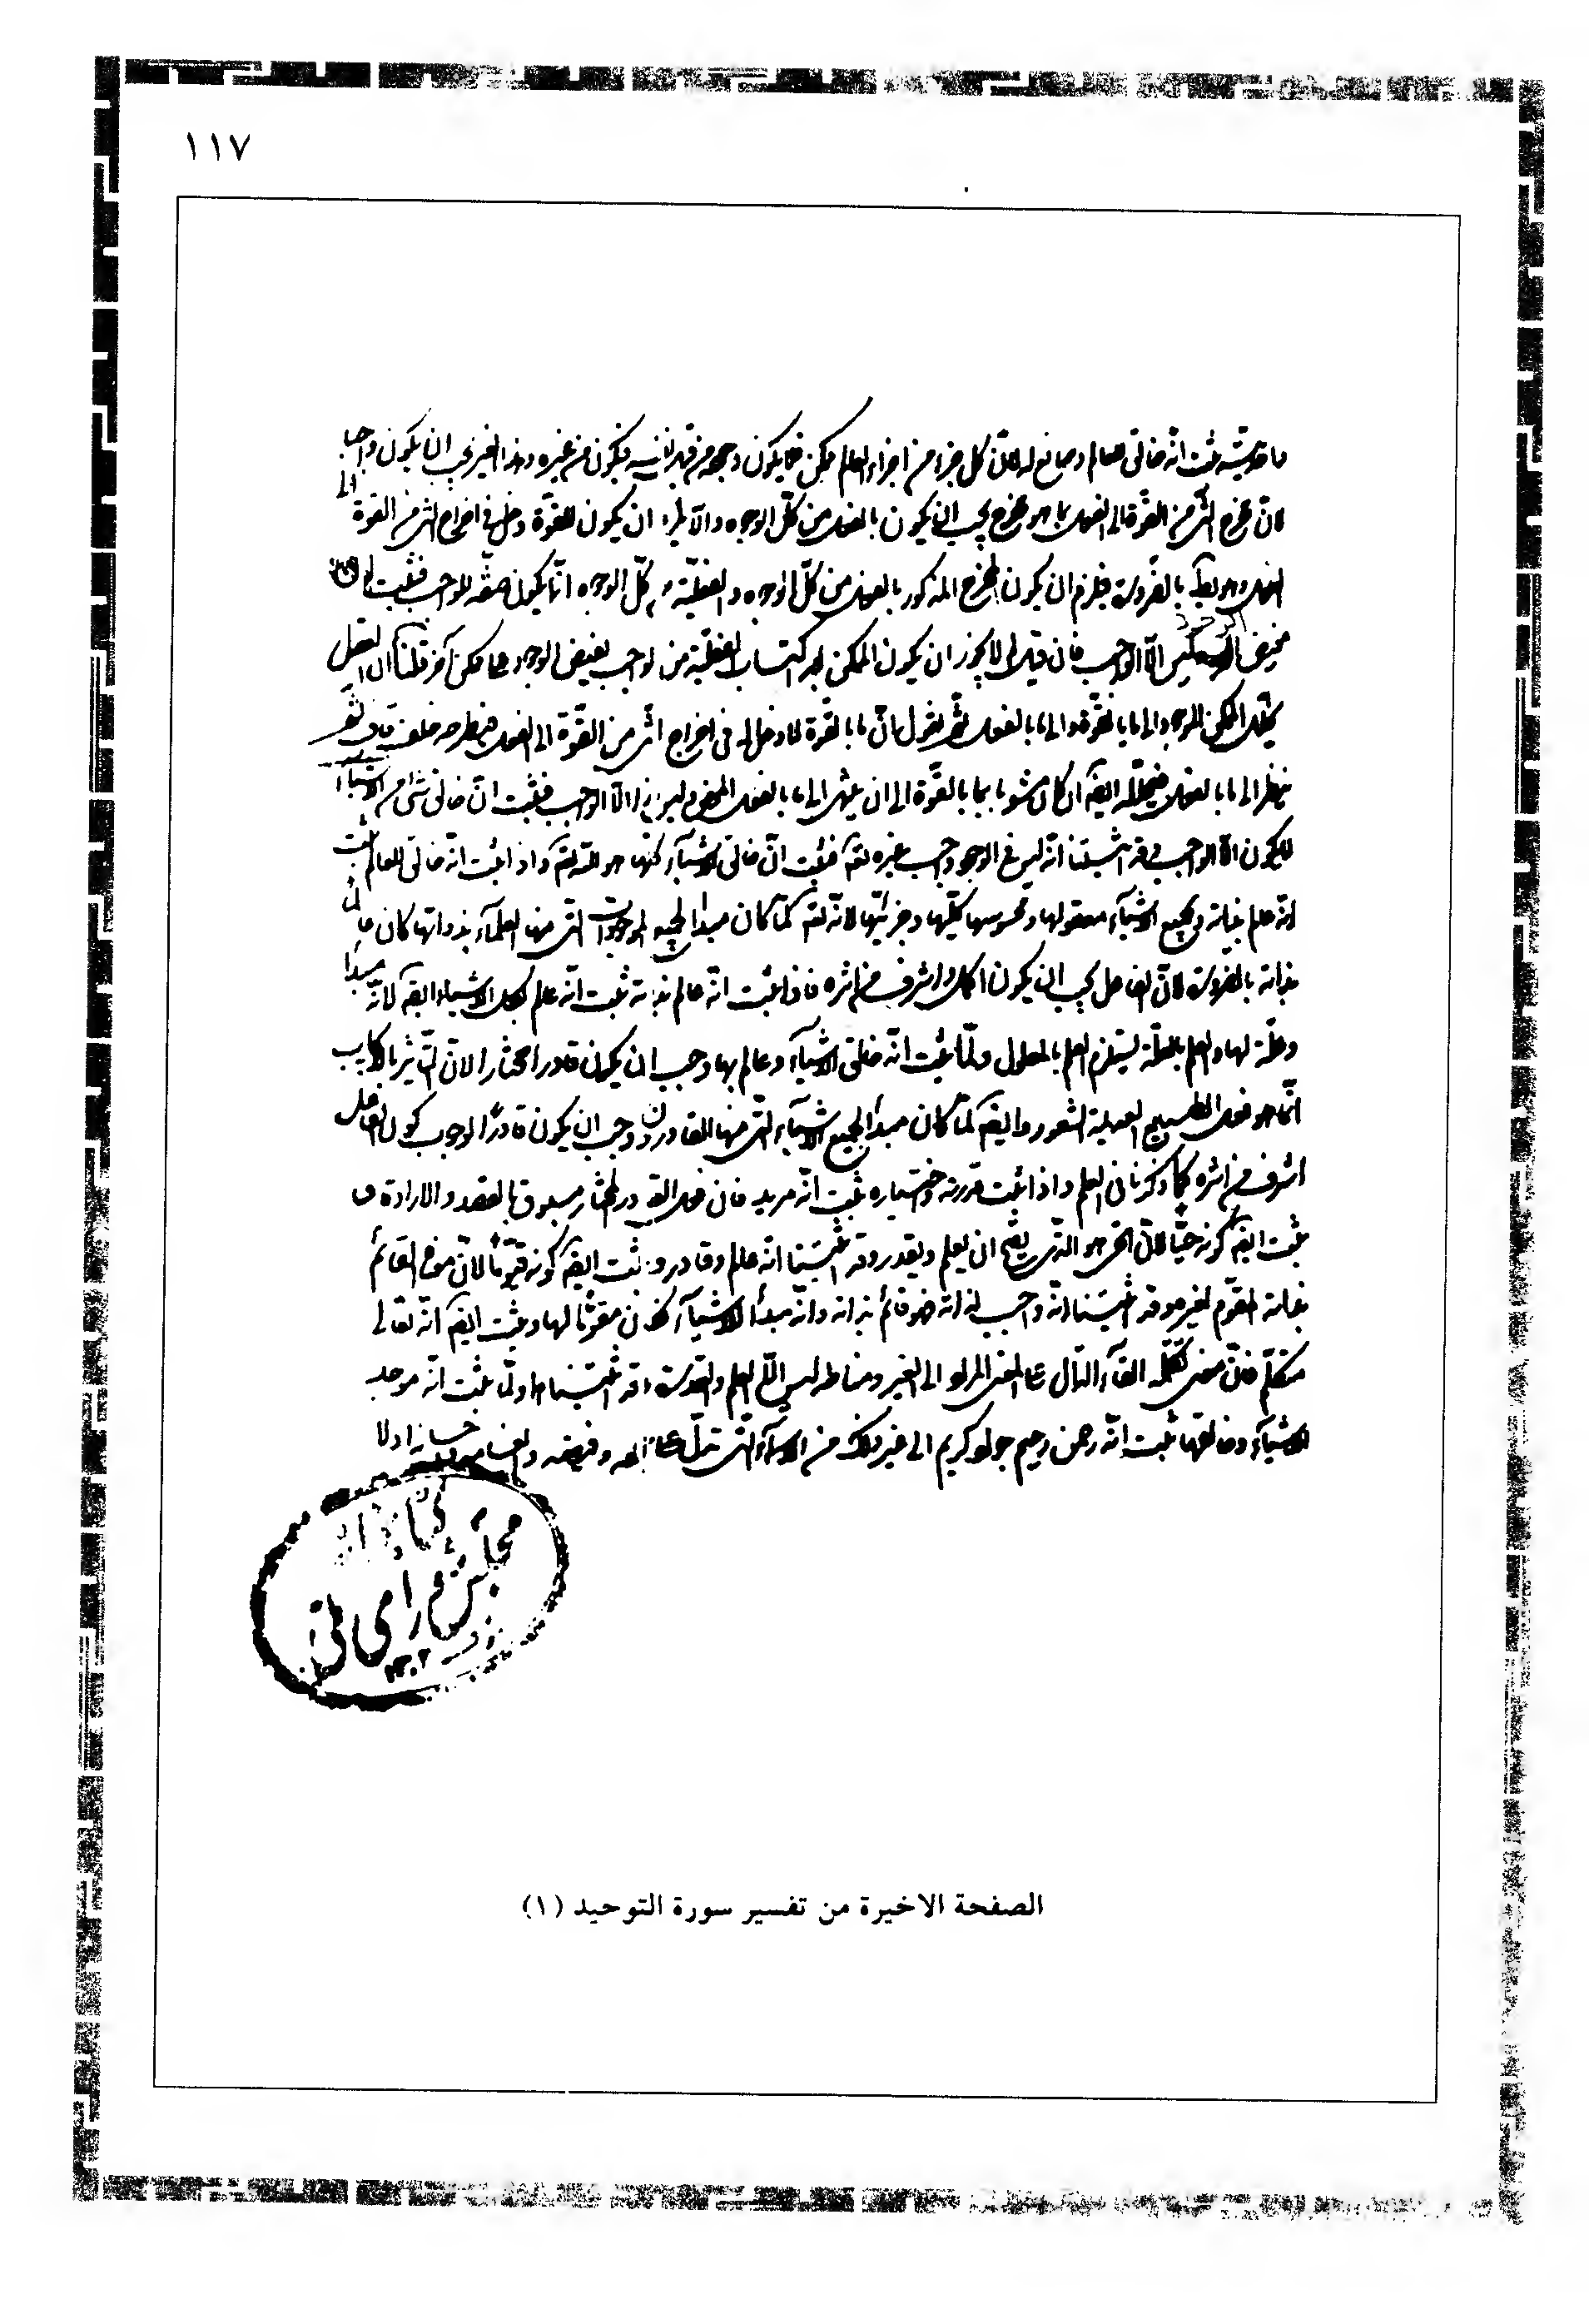 ١١٧
ثبت انّه خالق العالم وصانع له لانّ كل جزء من اجزاء العالم ممكن فلا يكون وجوده من قبل نفسه فيكون من غيره وهذا الغير يجب ان يكون واجبا
لانّ مخرج الشئ من القوّة الى الفعل بما هو مخرج يجب ان يكون بالفعل من كلّ الوجوه والّا يلزم ان يكون للقوّة دخل فى اخراج الشئ من القوة الى
الفعل وهو بط بالضرورة فيلزم ان يكون المخرج المذكور بالفعل من كلّ الوجوه والفعليّة من كلّ الوجوه انّما يكون صفة للواجب فثبت ان
مفيض الوجود ليس الّا الواجب فان قيل لم لا يجوز ان يكون الممكن بعد اكتساب الفعليّة من الواجب يفيض الوجود على ممكن آخر قلنا ان العقل
يحلّل الممكن الموجود الى ما بالقوّة والى ما بالفعل ثم نقول ما بالقوّة لا دخل له فى اخراج الشئ من القوّة الى الفعل
ننظر الى ما بالفعل فنحلّله ايضا ان كان مشوبا بما بالقوّة الى ان ينتهى الى ما بالفعل المحض وليس هذا الّا الواجب فثبت انّ خالق شئ من الاشياء
لا يكون الّا الواجب وقد اثبتنا انّه ليس فى الوجود واجب غيره تعه فثبت انّ خالق الاشياء كلّها هو اللّه تعه واذا ثبت انّه خالق العالم ثبت
انّه عالم بذاته وبجميع الاشياء معقولها ومحسوسها كلّيها وجزئيّها لانّه تعه لمّا كان مبدأ لجميع الموجودات الّتى منها العلماء بذواتها كان عالما
بذاته بالضرورة لانّ الفاعل يجب ان يكون اكمل واشرف من اثره فاذا ثبت انّه عالم بذاته ثبت انّه عالم بكل الاشياء ايضا لانّه مبدأ
وعلّة لها والعلم بالعلّة يستلزم العلم بالمعلول ولمّا ثبت انّه خالق الاشياء وعالم بها وجب ان يكون قادرا مختارا لانّ التاثير بالايجاب
انّما هو فعل الطبايع العديمة الشعور وايضا لمّا كان مبدأ لجميع الاشياء الّتى منها القادرون وجب ان يكون قادرا لوجوب كون الفاعل
اشرف من اثره كما ذكرنا فى العلم واذا ثبت قدرته واختياره ثبت انّه مريد فان فعل القادر المختار مسبوق بالقصد والارادة و
يثبت ايضا كونه حيّا لانّ الحى هو الّذى يصحّ ان يعلم ويقدر وقد اثبتنا انّه عالم وقادر وثبت ايضا كونه قيّوما لانّ معناه القائم
بذاته المقوّم لغيره وقد اثبتنا انّه واجب لذاته فهو قائم بذاته وانّه مبدأ الاشياء فيكون مقوّما لها ويثبت ايضا انّه تعالى
متكلّم فانّ معنى تكلّمه القاء الدّال على المعنى المراد الى الغير ومناطه ليس الّا العلم والقدرة وقد اثبتناهما ولمّا ثبت انّه موجد
الاشياء وخالقها ثبت انّه رحمن رحيم جواد كريم الى غير ذلك من الاسماء الّتى تدلّ على
مجلس شوراى ملّى
١٣٠٢
الصفحة الاخيرة من تفسير سورة التوحيد (١)